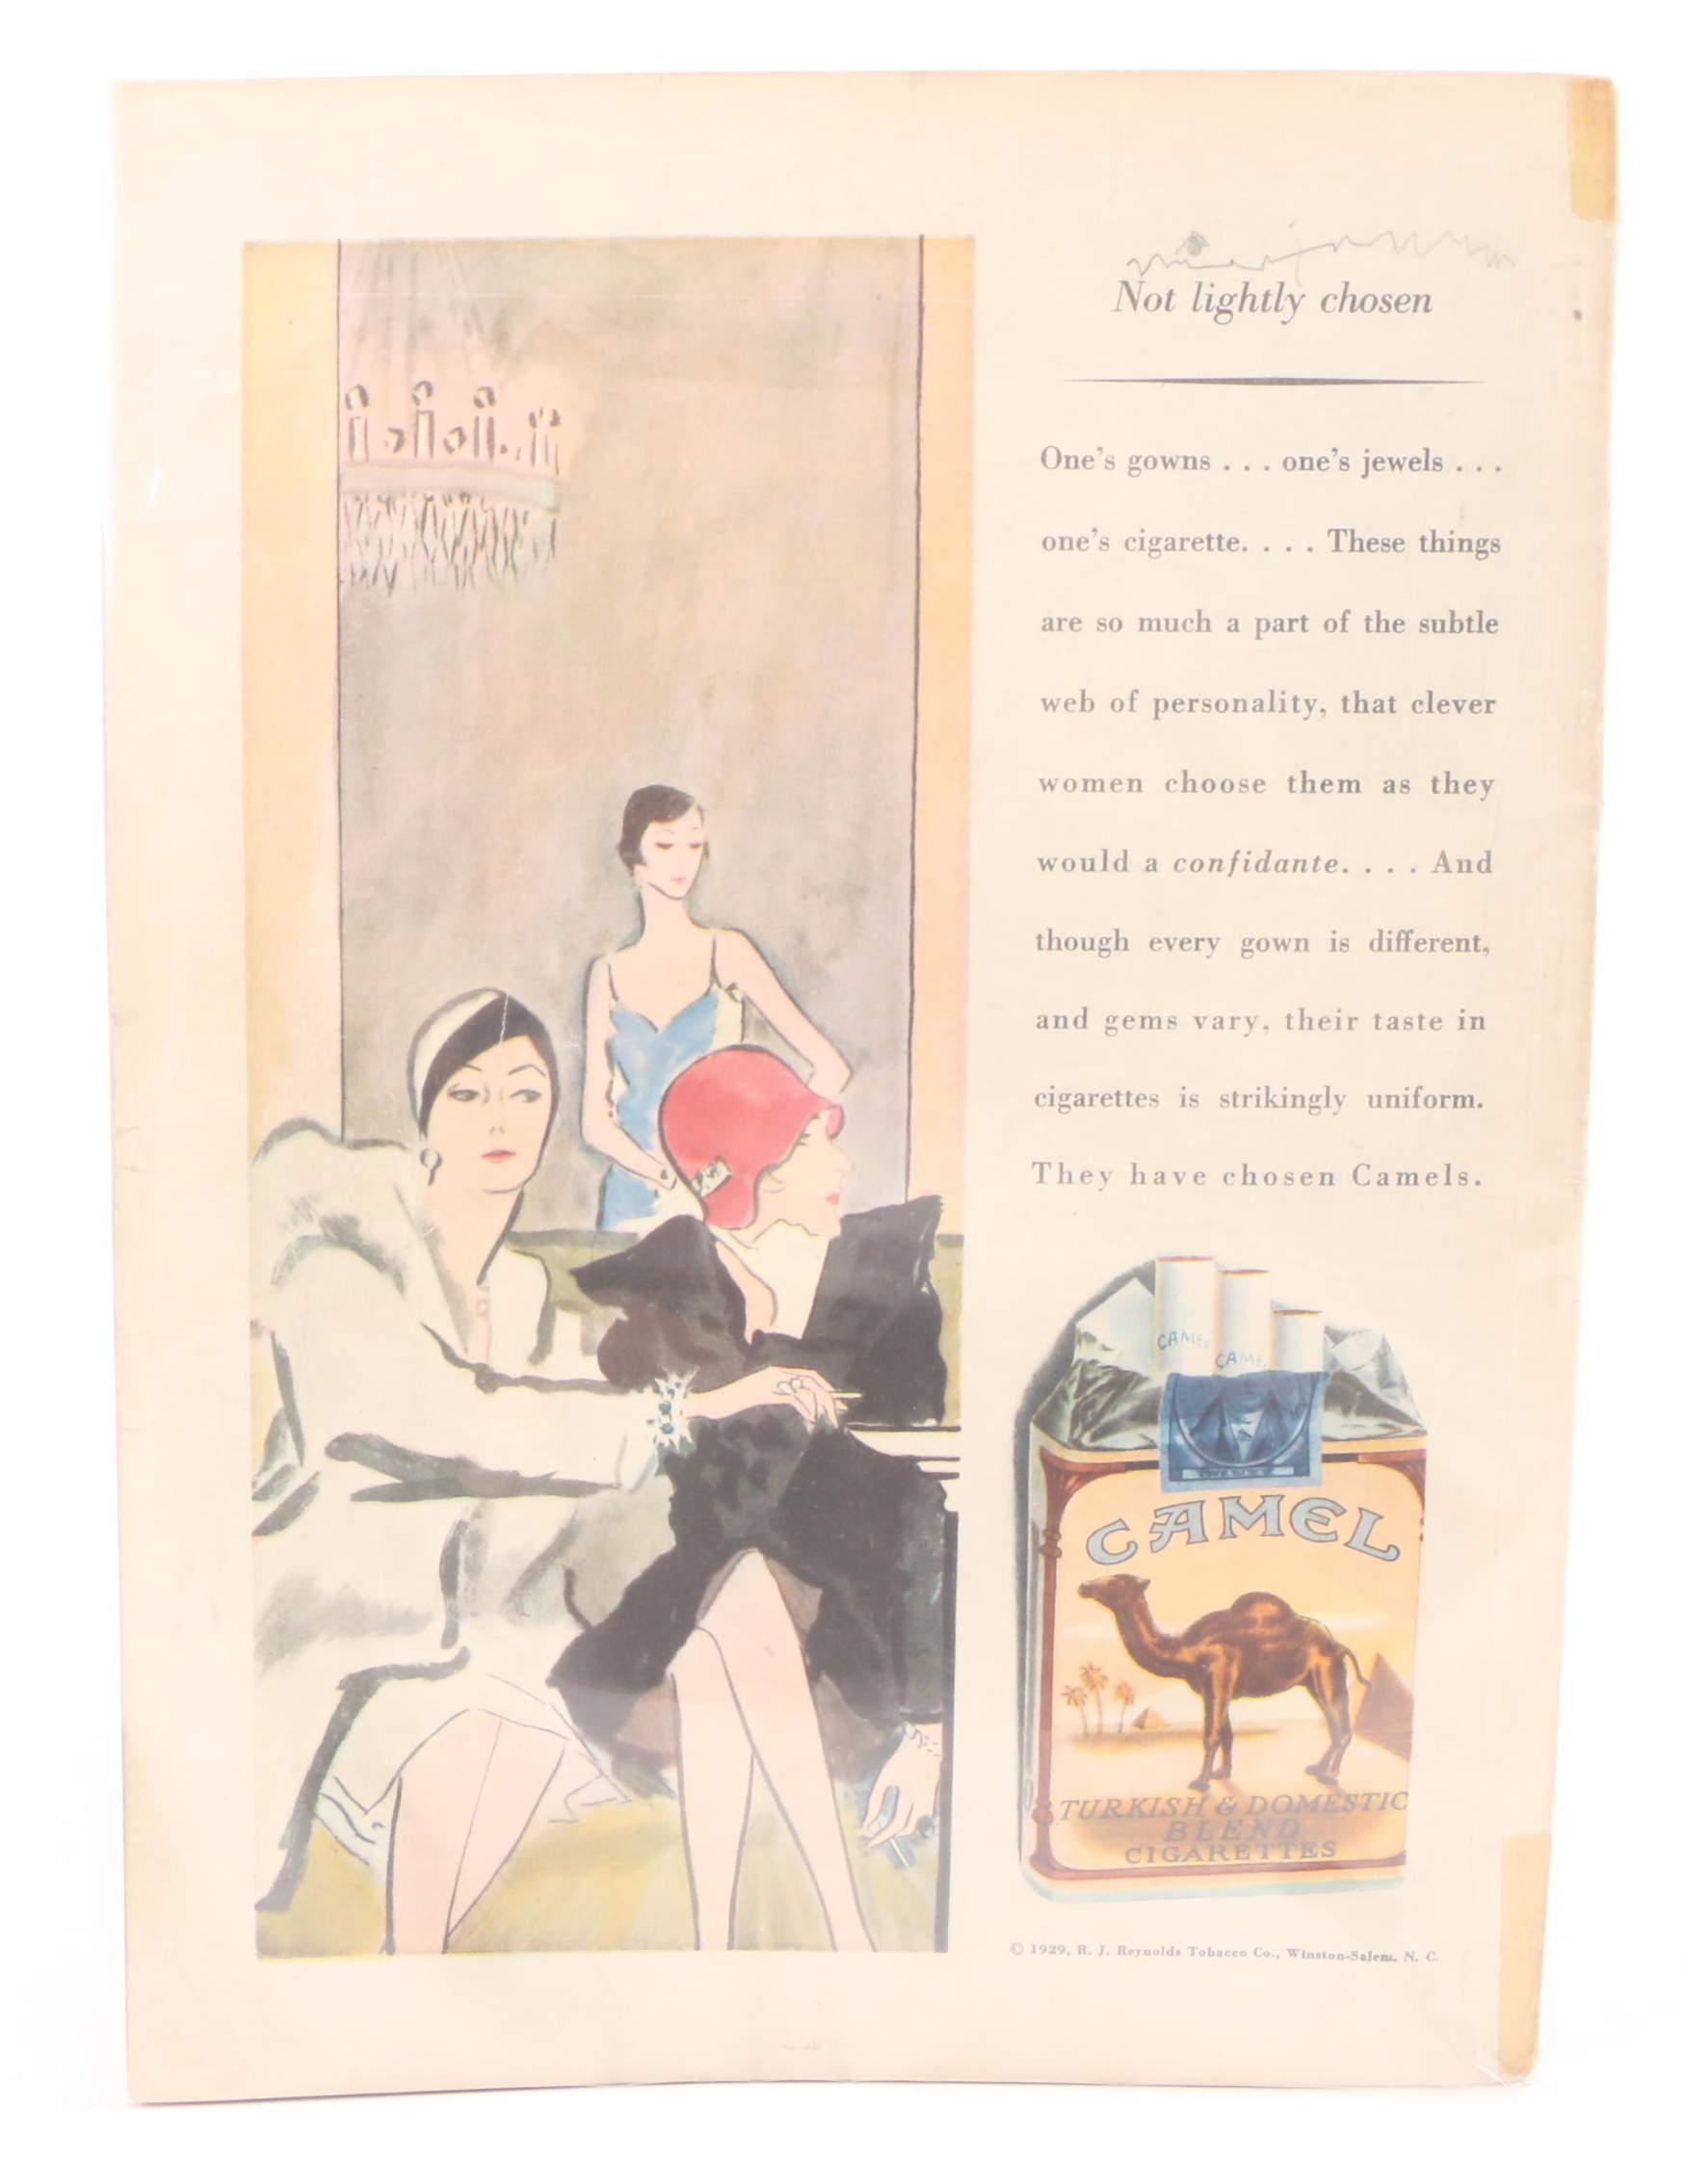 Not lightly chosen
One's gowns . . . one's jewels . . .
one's cigarette. . . . These things
are so much a part of the subtle
web of personality, that clever
women choose them as they
would a confidante. . . . And
though every gown is different,
and gems vary, their taste in
cigarettes is strikingly uniform.
They have chosen Camels.
CAMEL
CAME
CAMEL
TURKISH & DOMESTIC
BLEND
CIGARETTES
© 1929, R. J. Reynolds Tobacco Co., Winston-Salem, N. C.